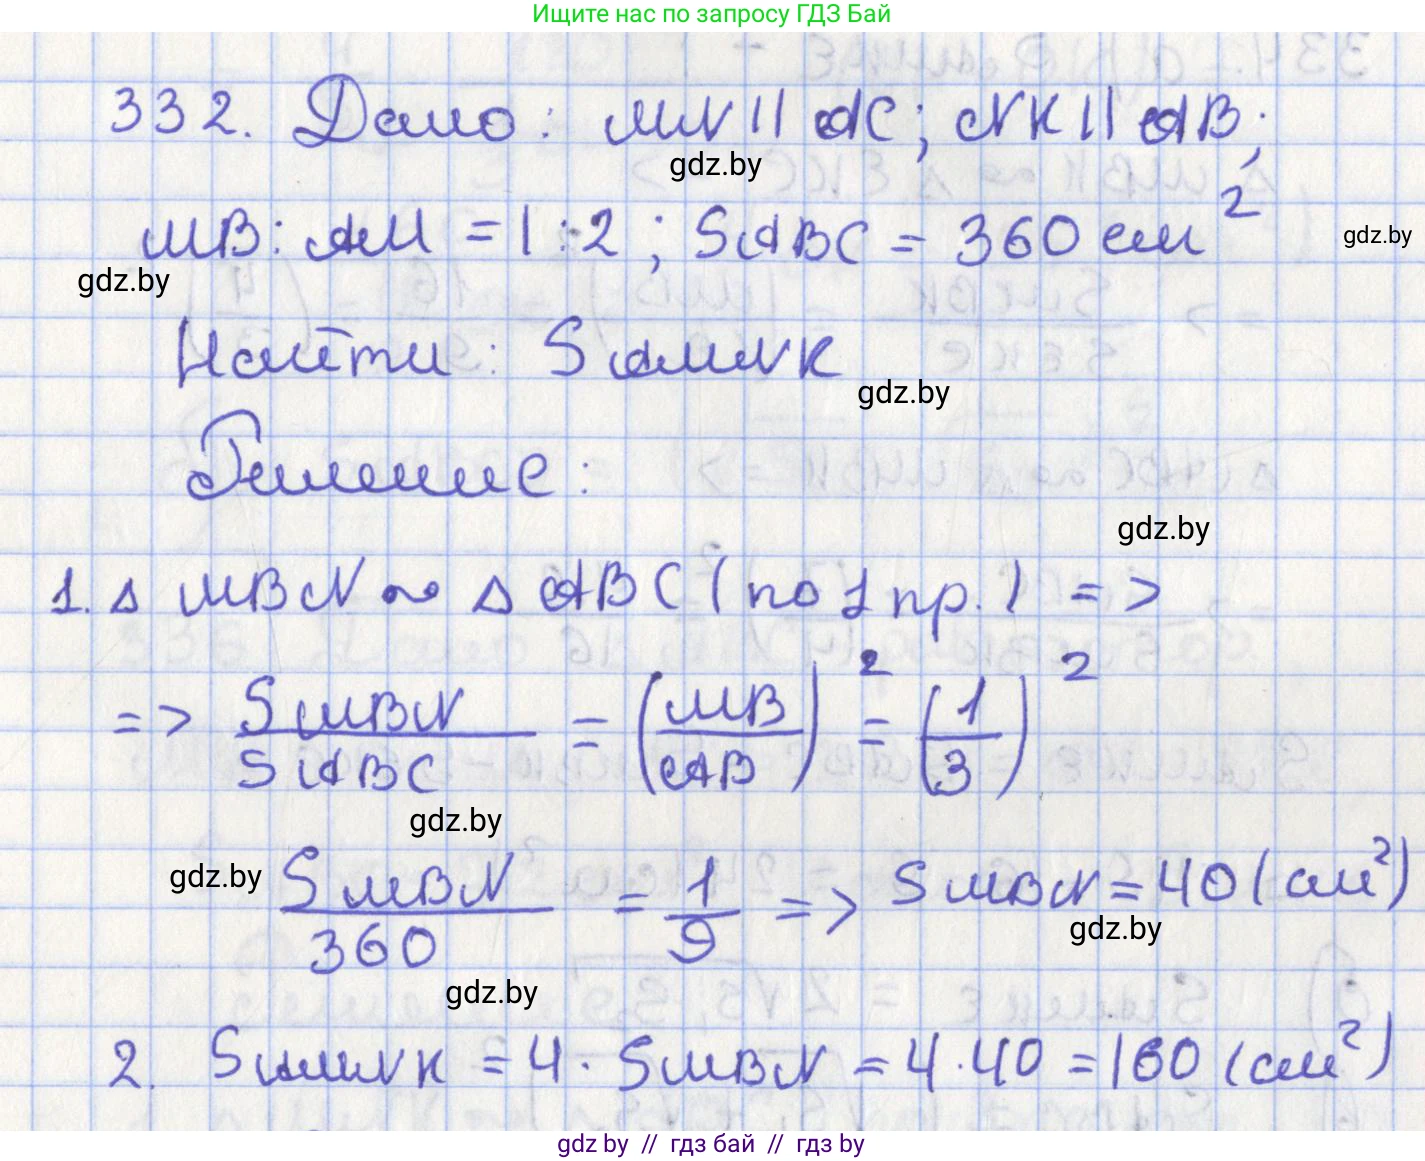 Ищите нас по запросу ГДЗ Бай
332. Дано: MN || AC; NK || AB;
gdz.by
MB : AM = 1 : 2; SABC = 360 см²
gdz.by
gdz.by
Найти: SAMNK
gdz.by
Решение:
gdz.by
1. △ MBN ∾ △ ABC (по 1 пр.) =>
=> SMBN/SABC = (MB/AB)² = (1/3)²
gdz.by
gdz.by
SMBN/360 = 1/9 => SMBN = 40 (см²)
gdz.by
gdz.by
2. SAMNK = 4 · SMBN = 4 · 40 = 160 (см²)
gdz by // гдз бай // гдз by